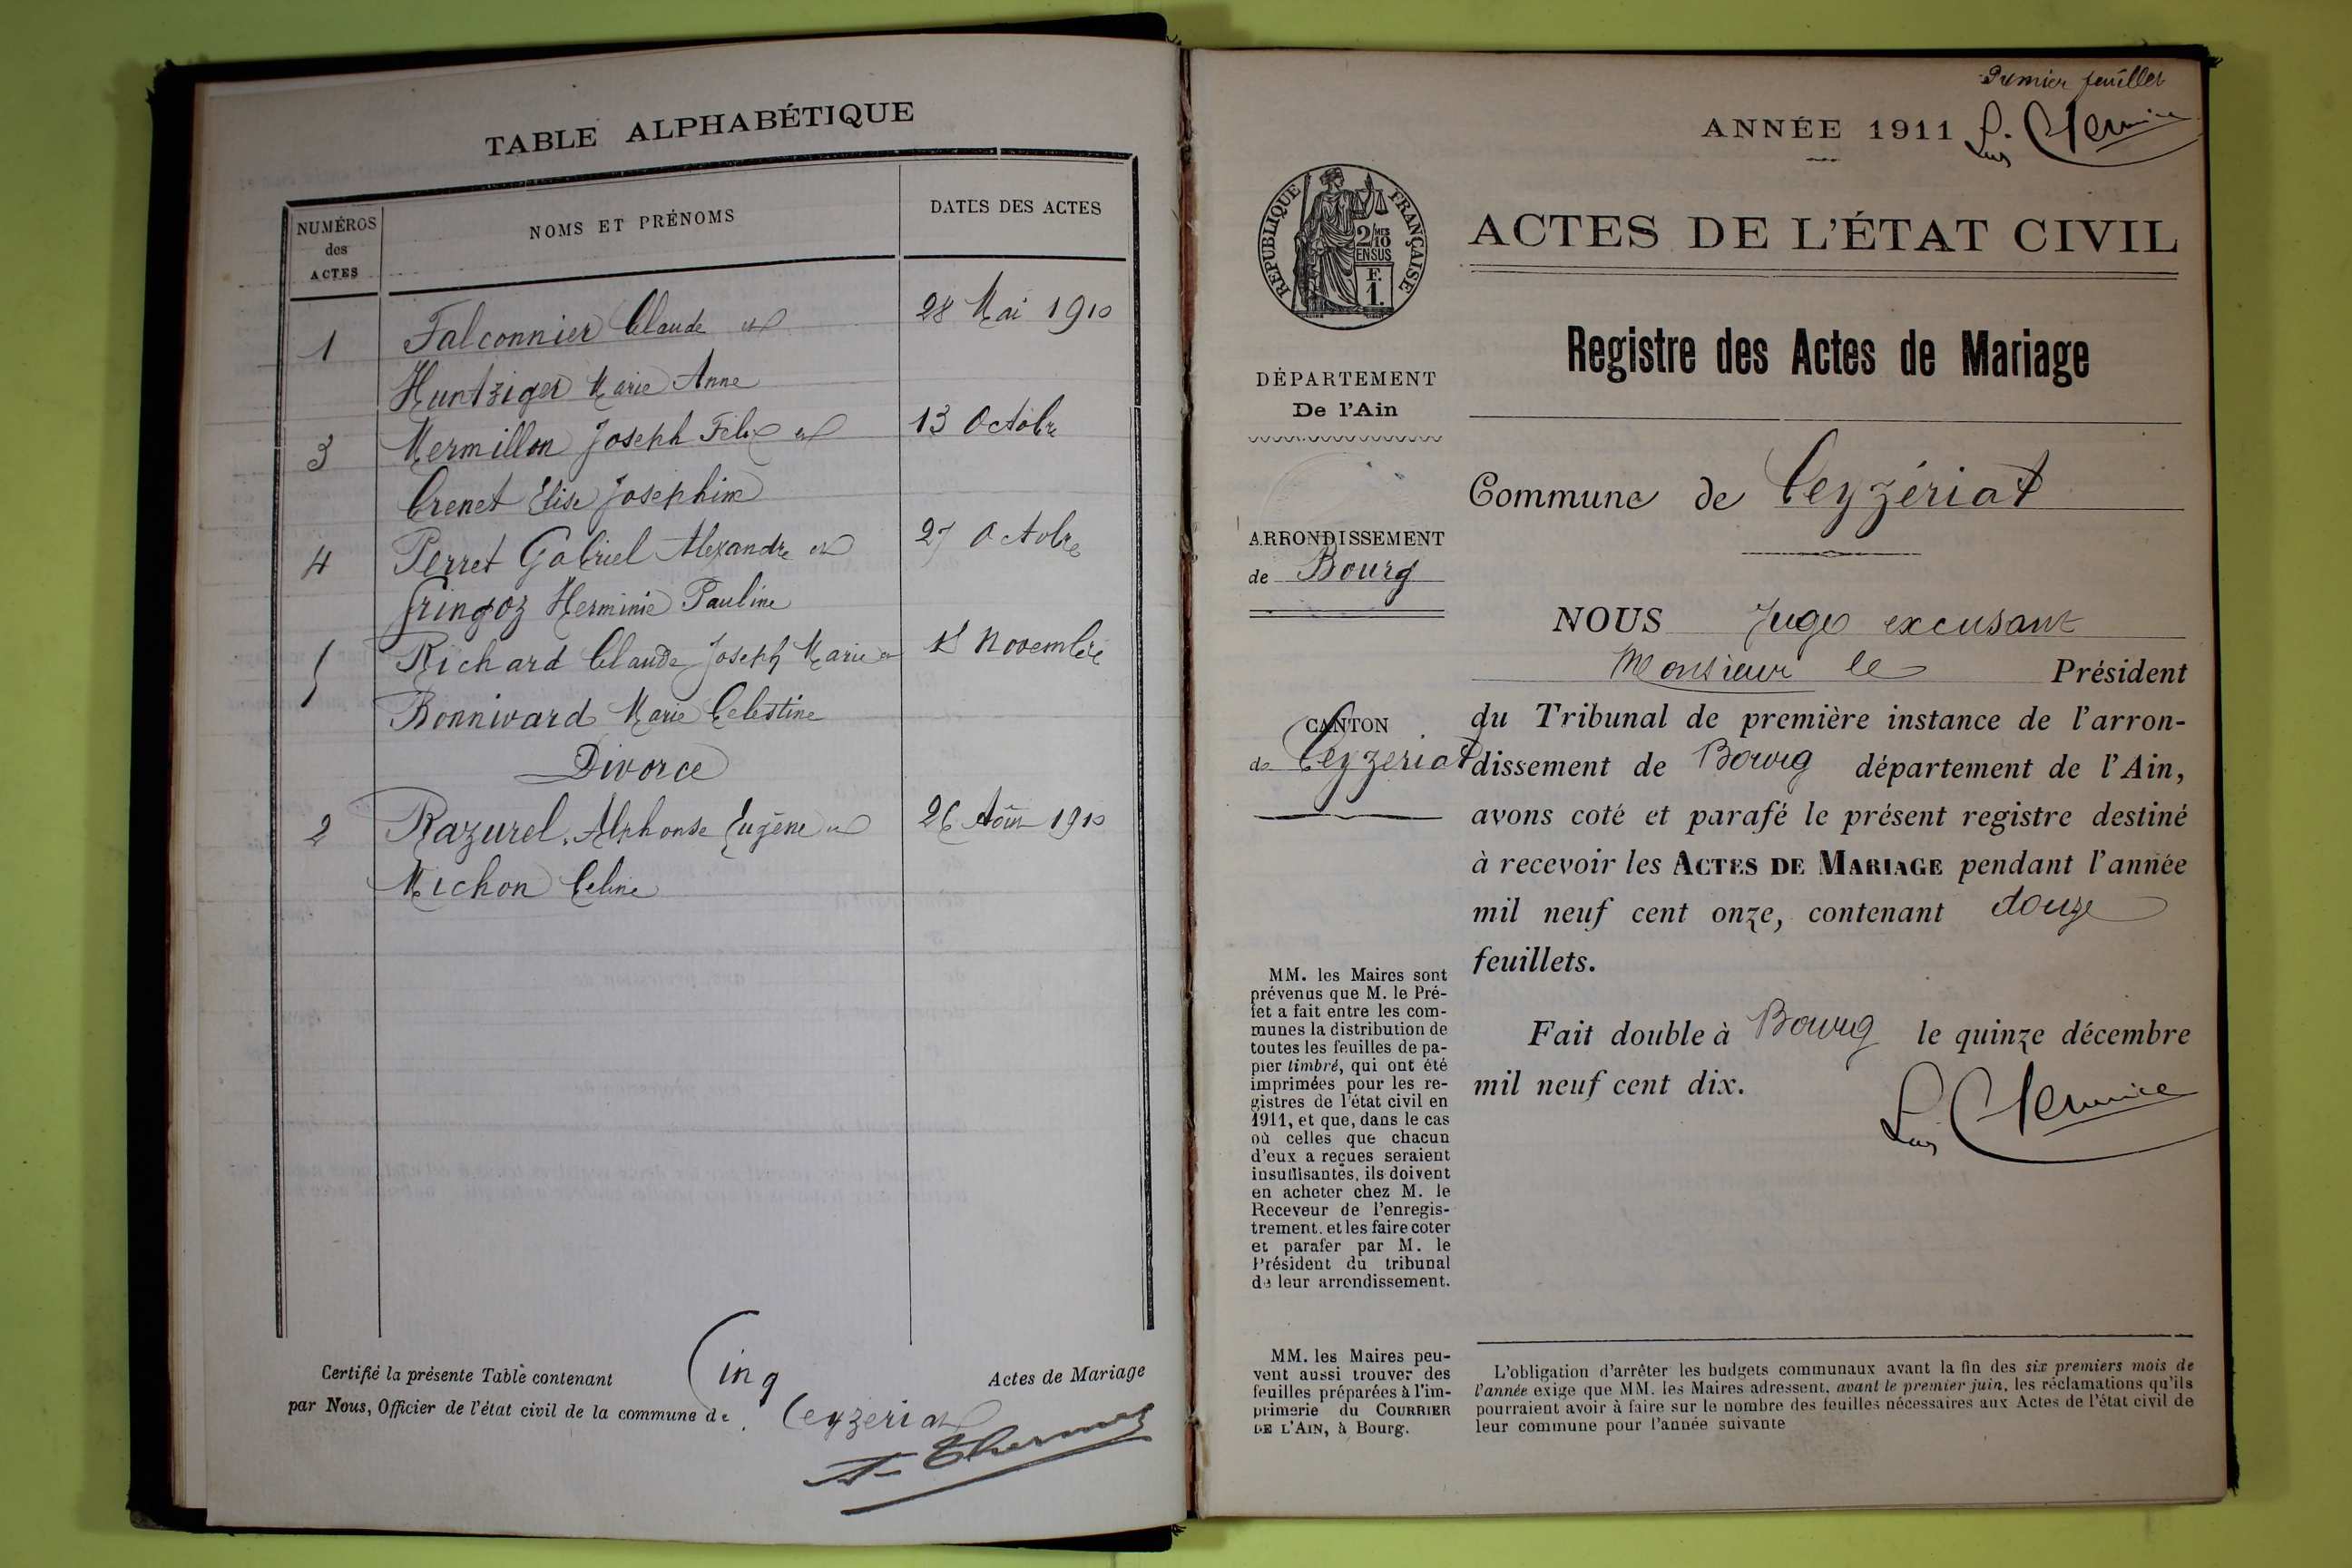 TABLE ALPHABÉTIQUE
NUMÉROS des ACTES
NOMS ET PRÉNOMS
DATES DES ACTES
1 Falconnier Claude et 28 Mai 1910
Huntziger Marie Anne
3 Mermillon Joseph Felix et 13 Octobre
Crenet Elise Josephine
4 Perret Gabriel Alexandre et 27 Octobre
Gringoz Herminie Pauline
5 Richard Claude Joseph Marie et Novembre
Bonnivard Marie Celestine
Divorce
2 Razurel Alphonse Eugène et 26 Août 1910
Michon Celine
Certifié la présente Table contenant Cinq Actes de Mariage
par Nous, Officier de l'état civil de la commune de Ceyzeriat
Premier feuillet
ANNÉE 1911
RÉPUBLIQUE FRANÇAISE
2/10 MES
EN SUS
F.
1.
ACTES DE L'ÉTAT CIVIL
Registre des Actes de Mariage
DÉPARTEMENT
De l'Ain
ARRONDISSEMENT
de Bourg
CANTON
de Ceyzeriat
MM. les Maires sont
prévenus que M. le Pré-
fet a fait entre les com-
munes la distribution de
toutes les feuilles de pa-
pier timbré, qui ont été
imprimées pour les re-
gistres de l'état civil en
1911, et que, dans le cas
où celles que chacun
d'eux a reçues seraient
insuffisantes, ils doivent
en acheter chez M. le
Receveur de l'enregis-
trement. et les faire coter
et parafer par M. le
Président du tribunal
de leur arrondissement.
MM. les Maires peu-
vent aussi trouver des
feuilles préparées à l'im-
primerie du COURRIER
DE L'AIN, à Bourg.
Commune de Ceyzériat
NOUS Juge excusant
Monsieur le Président
du Tribunal de première instance de l'arron-
dissement de Bourg département de l'Ain,
avons coté et parafé le présent registre destiné
à recevoir les ACTES DE MARIAGE pendant l'année
mil neuf cent onze, contenant douze
feuillets.
Fait double à Bourg le quinze décembre
mil neuf cent dix.
L'obligation d'arrêter les budgets communaux avant la fin des six premiers mois de
l'année exige que MM. les Maires adressent, avant le premier juin, les réclamations qu'ils
pourraient avoir à faire sur le nombre des feuilles nécessaires aux Actes de l'état civil de
leur commune pour l'année suivante